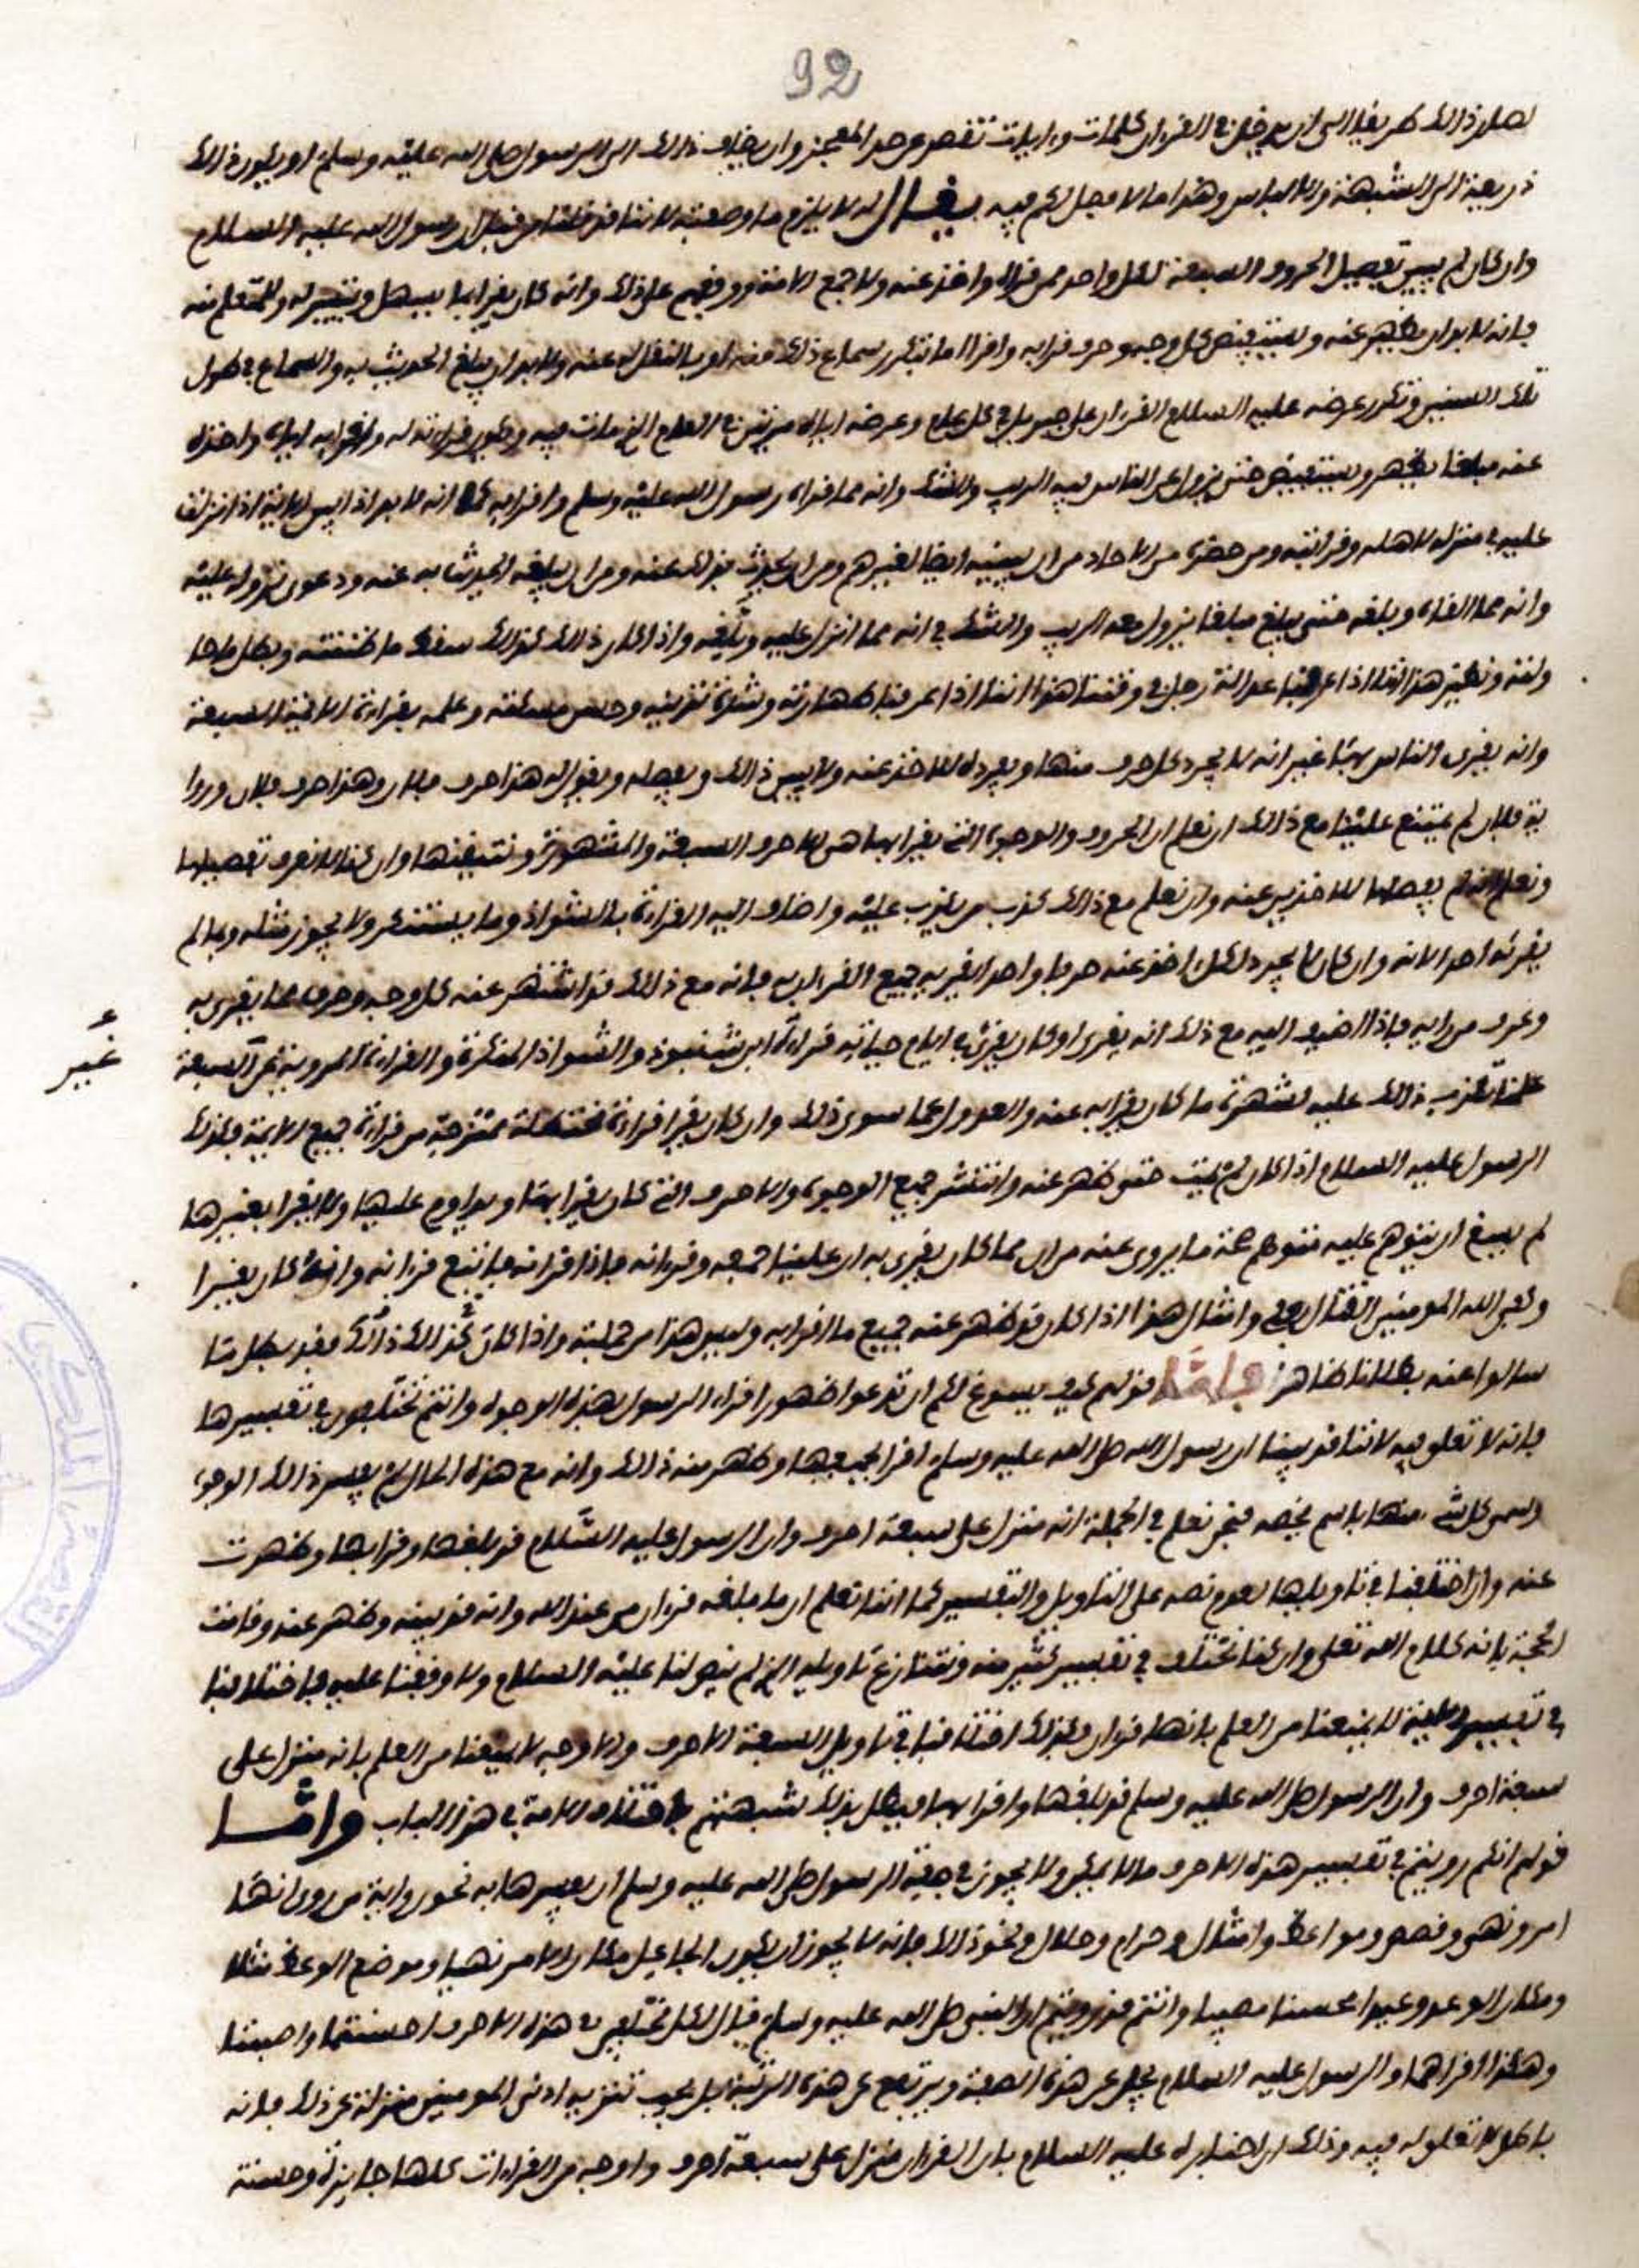 92
لصار ذالك طريقا الى ان يدخل في القرءان كلمات وءايات تقصر عن حد المعجز وان يضاف ذالك الى الرسول صلى الله عليه وسلم او يكون ذالك
ذريعة الى الشبهة والالباس وهذا ما لا مصل لكم فيه يقال له لا يلزم ما وصفته لاننا قد قلنا من قبل ان رسول الله عليه السلام
وان كان لم يبين تفصيل الحروف السبعة لكل واحد ممن قراه واخذ عنه ولا جمع الامة ووقفهم على ذلك وانه كان يقرا بما يسهل ويتيسر له وللمتعلم منه
فانه لا بد ان يظهر عنه ويستفيض كل وجه وحرف قرا به واقرا ما تكرر سماع ذلك منه او بالنقل له عنه ولا بد ان يبلغ الحديث به والسماع في طول
تلك السنين وتكرر عرضه عليه السلام القرءان على جبريل في كل عام وعرضه اياه مرتين في العام الذي مات فيه ويكون قراءته له واقرا به اياه واخذه
عنه مبلغا يظهر ويستفيض حتى يزول عن الناس فيه الريب والشك وانه مما قراه رسول الله عليه وسلم واقرا به كما انه لا بد اذا بين الاية اذا نزلت
عليه في منزله لاهله وقرابته ومن حضره من الاحاد من ان يبينه ايضا لغيرهم ومن ان يحدث بذلك عنه ومن ان يبلغه الحديث به عنه ودعوى نزوله عليه
وانه مما القاه وبلغه حتى يبلغ مبلغا يزول معه الريب والشك في انه مما انزل عليه وبلغه واذا كان ذالك كذالك سقط ما ظننته وبطل ما
ولته ونظير هذا اننا اذا عرفنا عدالة رجل في وقتنا هذا اننا اذا عرفنا طهارته وشدة تدينه وحسن مسكته وعلمه بقراءة الايمة السبعة
وانه يقرى الناس بها غير انه لا يجرد كل حرف منها ويفرده للاخذ عنه ولا يبين ذالك ويفصله ويقول له هذا حرف فلان وهذا حرف فلان وروا
ية فلان لم يمتنع علينا مع ذالك ان نعلم ان الحروف والوجوه التي يقرا بها هي الاحرف السبعة والمشهورة ونتيقنها وان كنا لا نعرف تفصيلها
ونعلم انه لم يفصلها للاخذين عنه وان نعلم مع ذالك كذب من يكذب عليه واضاف اليه القراءة بالشواذ وما يستنكر ولا يجوز مثله وما لم
يقرئه احدا لانه وان كان لا يجرد لكل اخذ عنه حرفا واحدا يقريه جميع القرءان به فانه مع ذالك قد اشتهر عنه كل وجه وحرف مما يقرى به
وعرف من رايه فاذا اضيف اليه مع ذلك انه يقرى او كان يقرئ في ايام حياته قراءة ابن شنبوذ والشواذ المنكرة والقراءة المروية عن السبعة
غير
علمنا تكذب ذالك عليه لشهرة ما كان يقرا به عنه والعدول عما سوى ذلك وان كان يقرا قراءة مختلطة ممتزجة من قراءة جميع الايمة فكذلك
الرسول عليه السلام اذا كان لم يمت حتى ظهر عنه وانتشر جميع الوجوه والاحرف التي كان يقرا بها ويداوم عليها ولا يقرا بغيرها
لم يسغ ان يتوهم عليه متوهم صحة ما يروى عنه من ان مما كان يقرى به ان علينا جمعه وقرءانه فاذا قراناه فاتبع قرءانه وانه كان يقرا
وكفى الله المومنين القتال بعلي وامثال هذا اذا كان قد ظهر عنه جميع ما اقرا به وليس هذا من جملته واذا كان كذالك ذالك فقد بطل ما
سالوا عنه بطلانا ظاهرا فاما قولهم كيف يسوغ لكم ان تدعوا ظهور اقراء الرسول بهذه الوجوه وانتم تختلفون في تفسيرها
فانه لا تعلق فيه لاننا قد بينا ان رسول الله صلى الله عليه وسلم اقرا بجميعها وظهر منه ذالك وانه مع هذه الحال لم يفسر ذالك الوجوه
وسمى كل شيء منها باسم يخصه فنحن نعلم في الجملة انه منزل على سبعة احرف وان الرسول عليه السلام قد بلغها وقرا بها وظهرت
عنه وان اختلفنا في تاويلها لعدم نصه على التاويل والتفسير كما اننا نعلم ان ما بلغه قرءان من عند الله وانه قد بينه وظهر عنه وقامت
الحجة بانه كلام الله تعلى وان كنا نختلف في تفسير كثير منه ونتنازع تاويله الذي لم ينص لنا عليه السلام ولا وقفنا عليه فاختلافنا
في تفسير الاية لا يمنعنا من العلم بانها قرءان وكذلك اختلافنا في تاويل السبعة الاحرف والاوجه لا يمنعنا من العلم بانه منزل على
سبعة احرف وان الرسول صلى الله عليه وسلم قد بلغها واقرا بها فبطل بذلك شبهتهم باختلاف الامة في هذا الباب واما
قولهم انكم رويتم في تفسير هذه الاحرف ما لا يمكن ولا يجوز في صفة الرسول صلى الله عليه وسلم ان يفسرها به نحو رواية من روى انها
امر ونهي وقصص ومواعظ وامثال وحرام وحلال ونحو ذالك فانه لا يجوز ان يكون الجاعل مكان الامر نهيا وموضع الوعظ مثلا
ومكان الوعد وعيدا محسنا مصيبا وانتم قد رويتم ان النبي صلى الله عليه وسلم قال لكل مختلفين في هذه الاحرف احسنتما واصبتما
وهكذا اقراهما والرسول عليه السلام يجل عن هذه الصفة ويرتفع عن هذه الرتبة بل يجب تنزيه ادنى المومنين منزلة عن ذلك فانه
باطل لا تعلق له فيه وذلك ان اخباره عليه السلام بان القرءان منزل على سبعة احرف واوجه من القراءات كلها جايزة وحسنة